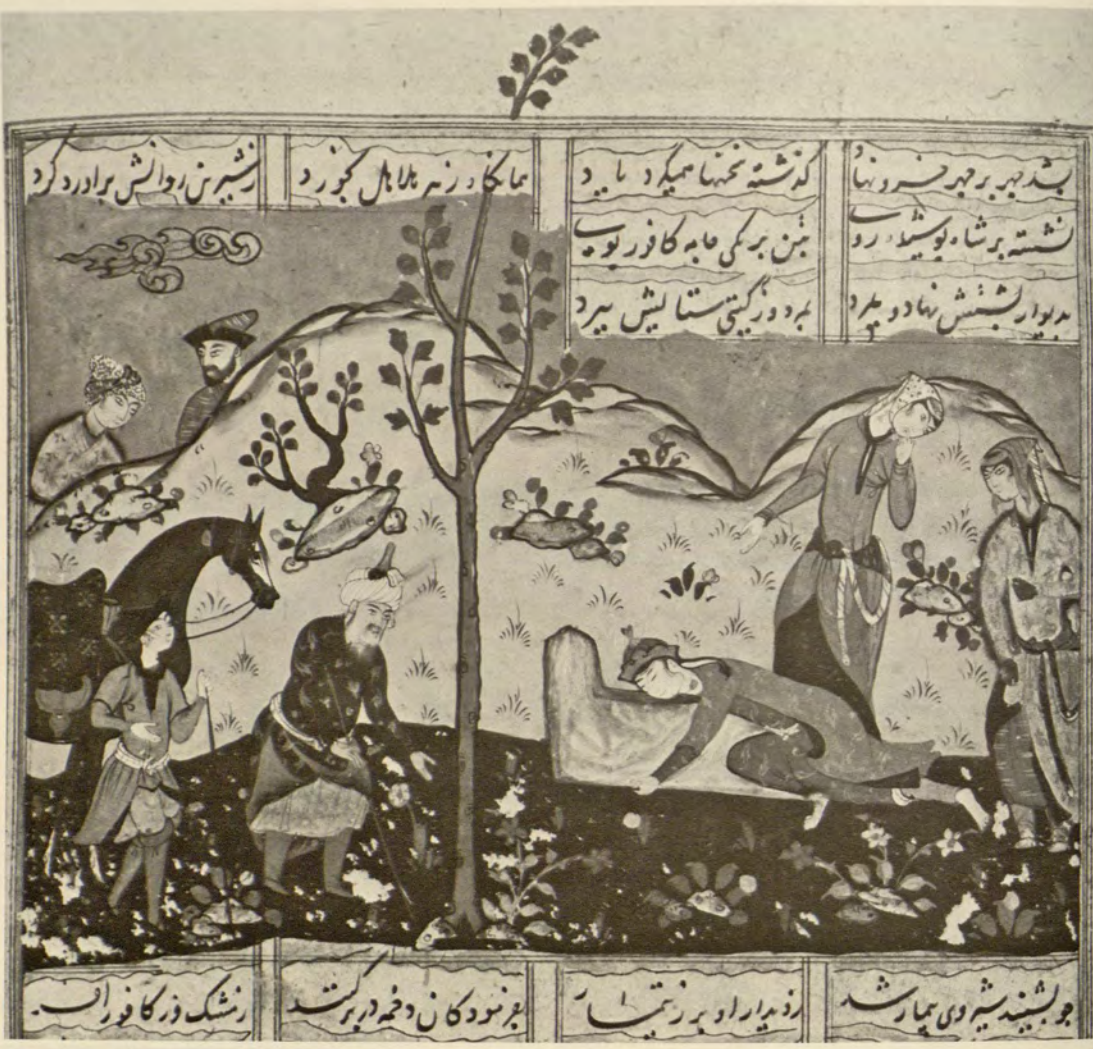 بشد چهر بر چهر خسرو نهاد گذشته سخنها همیکرد یاد همانگاه زهر هلاهل بخورد زشیرین روانش برآورد گرد
نشسته بر شاه پوشیده روی بتن بر یکی جامه کافور بوی
بدیوار پشتش نهاد و بمرد بمرد و زگیتی ستایش ببرد
چو بشنید شیروی بیمار شد زدیدار او پر ز تیمار بفرمود کان دخمه در بر کنند زمشک وز کافور